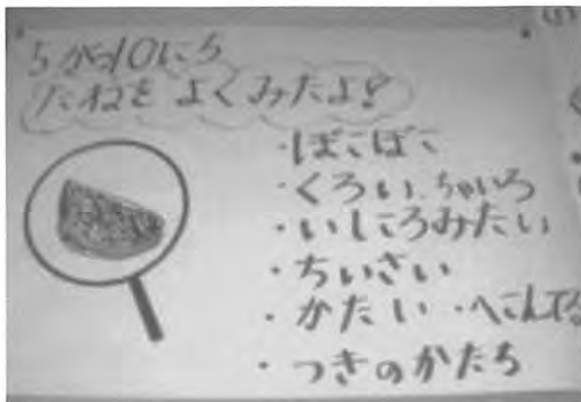 5がつ10にち
たねを よくみたよ!
・ぼこぼこ
・くろい、ちゃいろ
・いしころみたい
・ちいさい
・かたい ・へこんでる
・つきのかたち